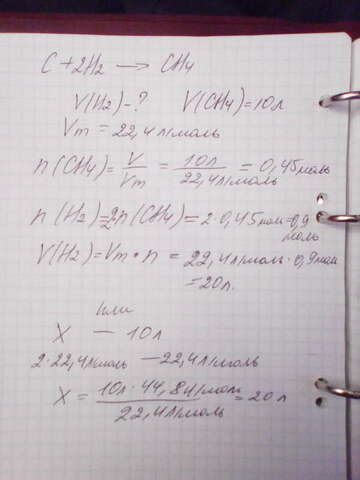 C + 2H₂ → CH₄
V(H₂) - ? V(CH₄) = 10л
Vm = 22,4л/моль
n(CH₄) = V/Vm = 10л/22,4л/моль = 0,45моль
n(H₂) = 2n(CH₄) = 2·0,45моль = 0,9
моль
V(H₂) = Vm · n = 22,4л/моль · 0,9моль
= 20л.
или
X — 10л
2·22,4л/моль — 22,4л/моль
X = 10л · 44,8л/моль / 22,4л/моль = 20л